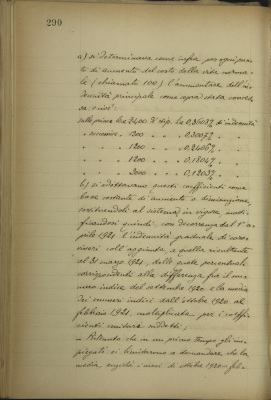 290
a) si determinava come infra per ogni pun-
to di aumento del costo della vita norma-
le (chiamato 100) l'ammontare dell'in-
dennità principale come sopra stata conces-
sa e cioè:
sulle prime Lire 2400 di stip. L. 0,3608% di indennità
" successive 1200 " " " 0.3007% "
" " 1200 " " " 0.2406% "
" " 1200 " " " 0.1804% "
" " 3000 " " " 0,1203% "
b) si adottavano questi coefficienti come
base costante di aumento o diminuzione,
sostituendoli al sistema in vigore, modi-
ficandosi quindi, con decorrenza dal 1° a-
prile 1921 l'indennità graduale di caro-
viveri coll'aggiunta, a quella risultante
al 31 marzo 1921, delle quote percentuali
corrispondenti alla differenza fra il nu-
mero indice del settembre 1920 e la media
dei numeri indici dall'ottobre 1920 al
febbraio 1921, moltiplicata per i coeffi-
cienti unitari suddetti;
- Ritenuto che in un primo tempo gli im-
piegati si limitarono a domandare che la
media, anziché i mesi di ottobre 1920 - feb-